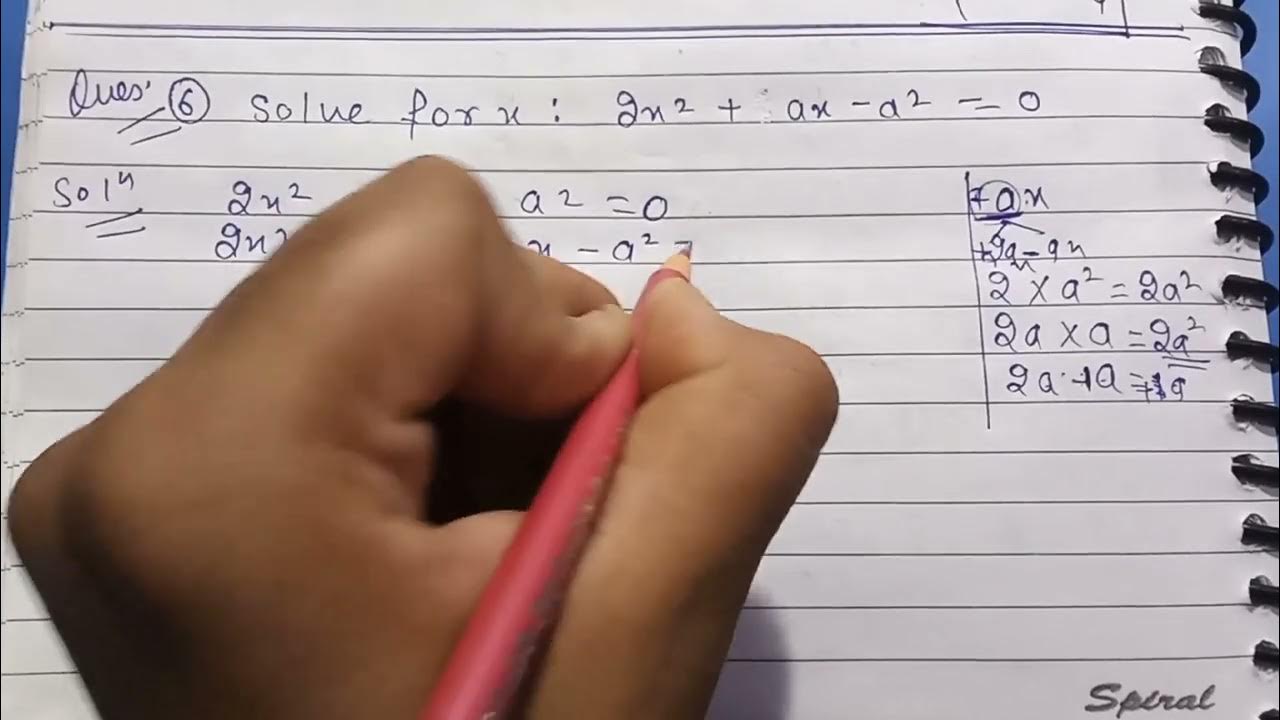 Ques. 6 Solve for x : 2x² + ax - a² = 0
Solⁿ 2x² a² = 0
2x² x - a² =
+a x
+2ax - ax
2 × a² = 2a²
2a × a = 2a²
2a - 1a =
Spiral